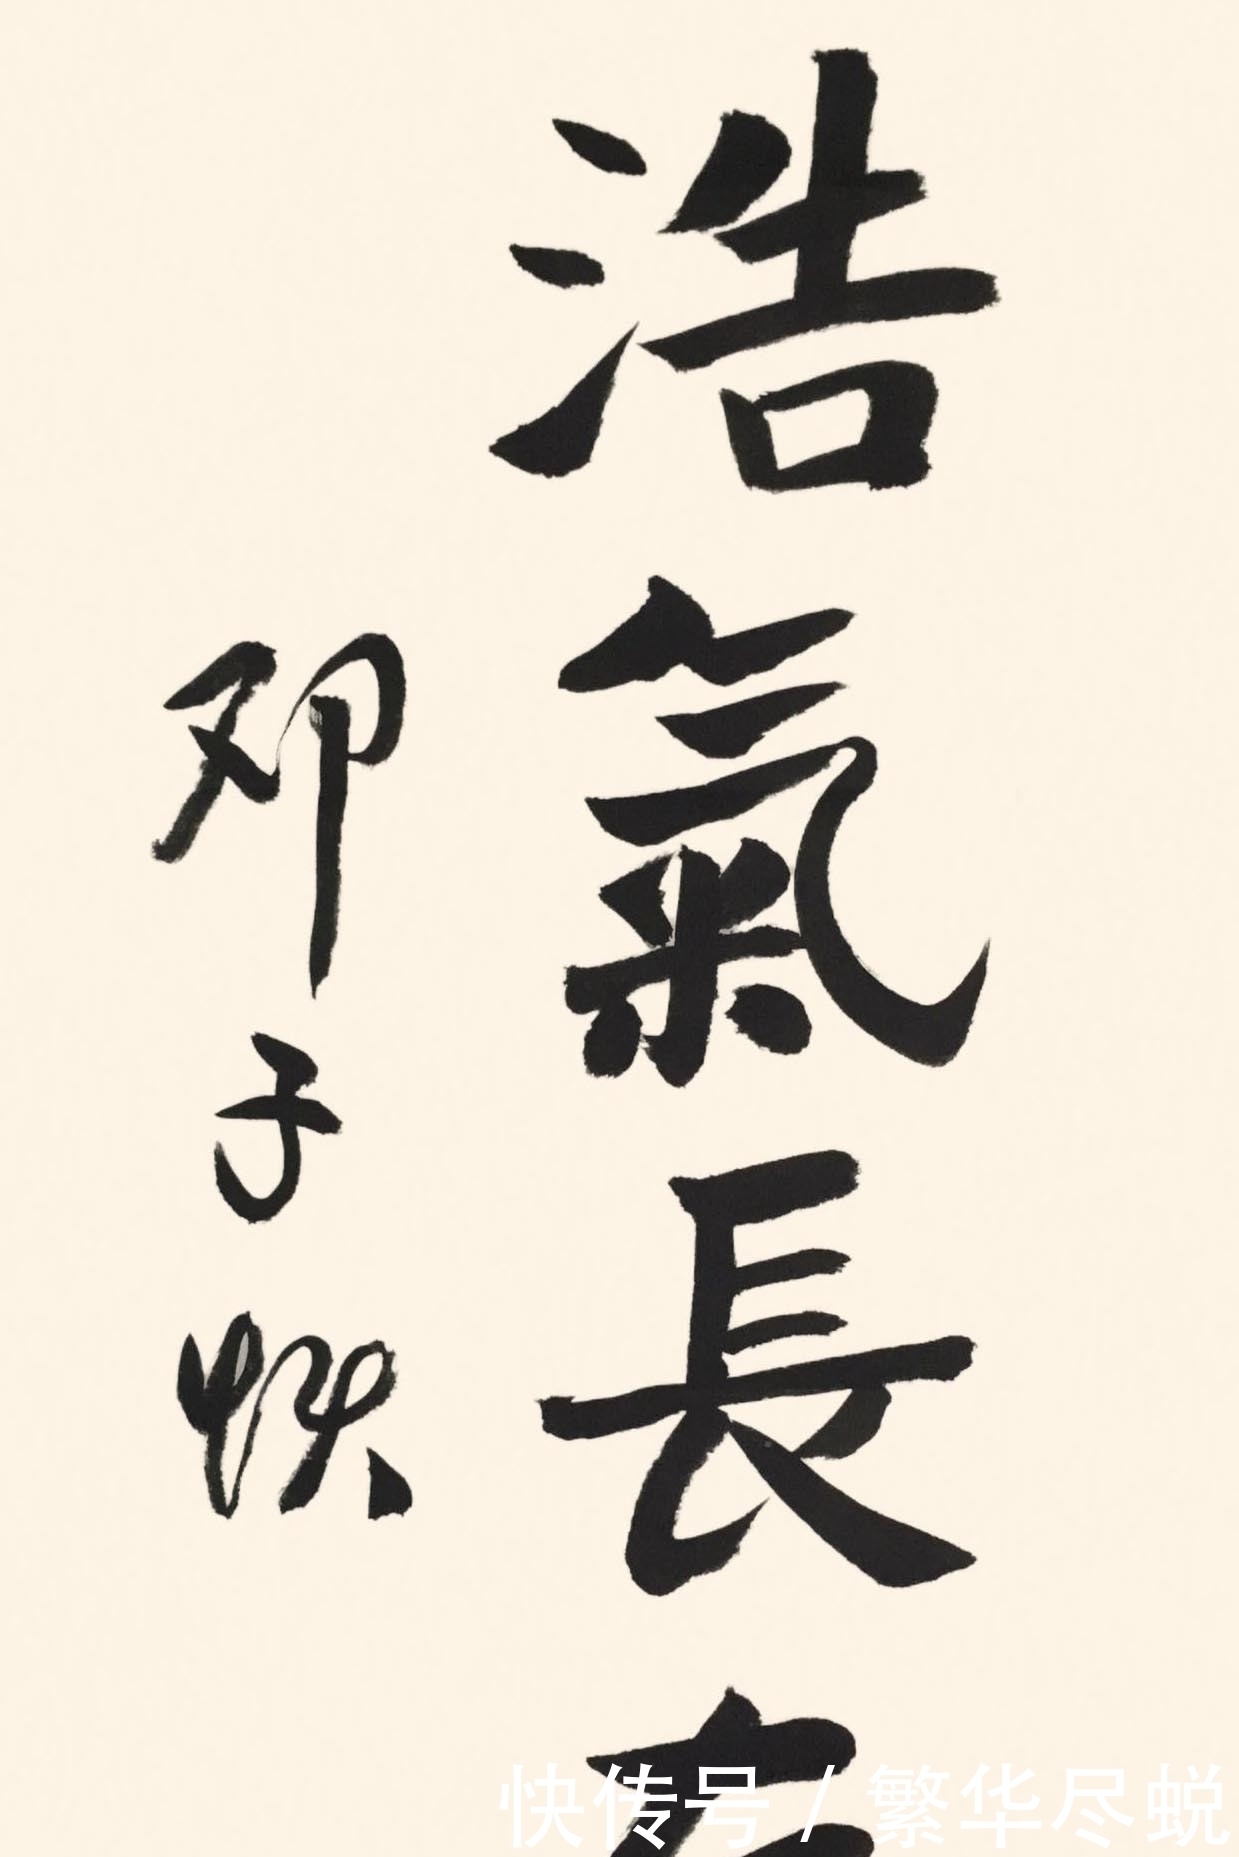 浩氣長
邓子
快传号 / 繁华尽蜕